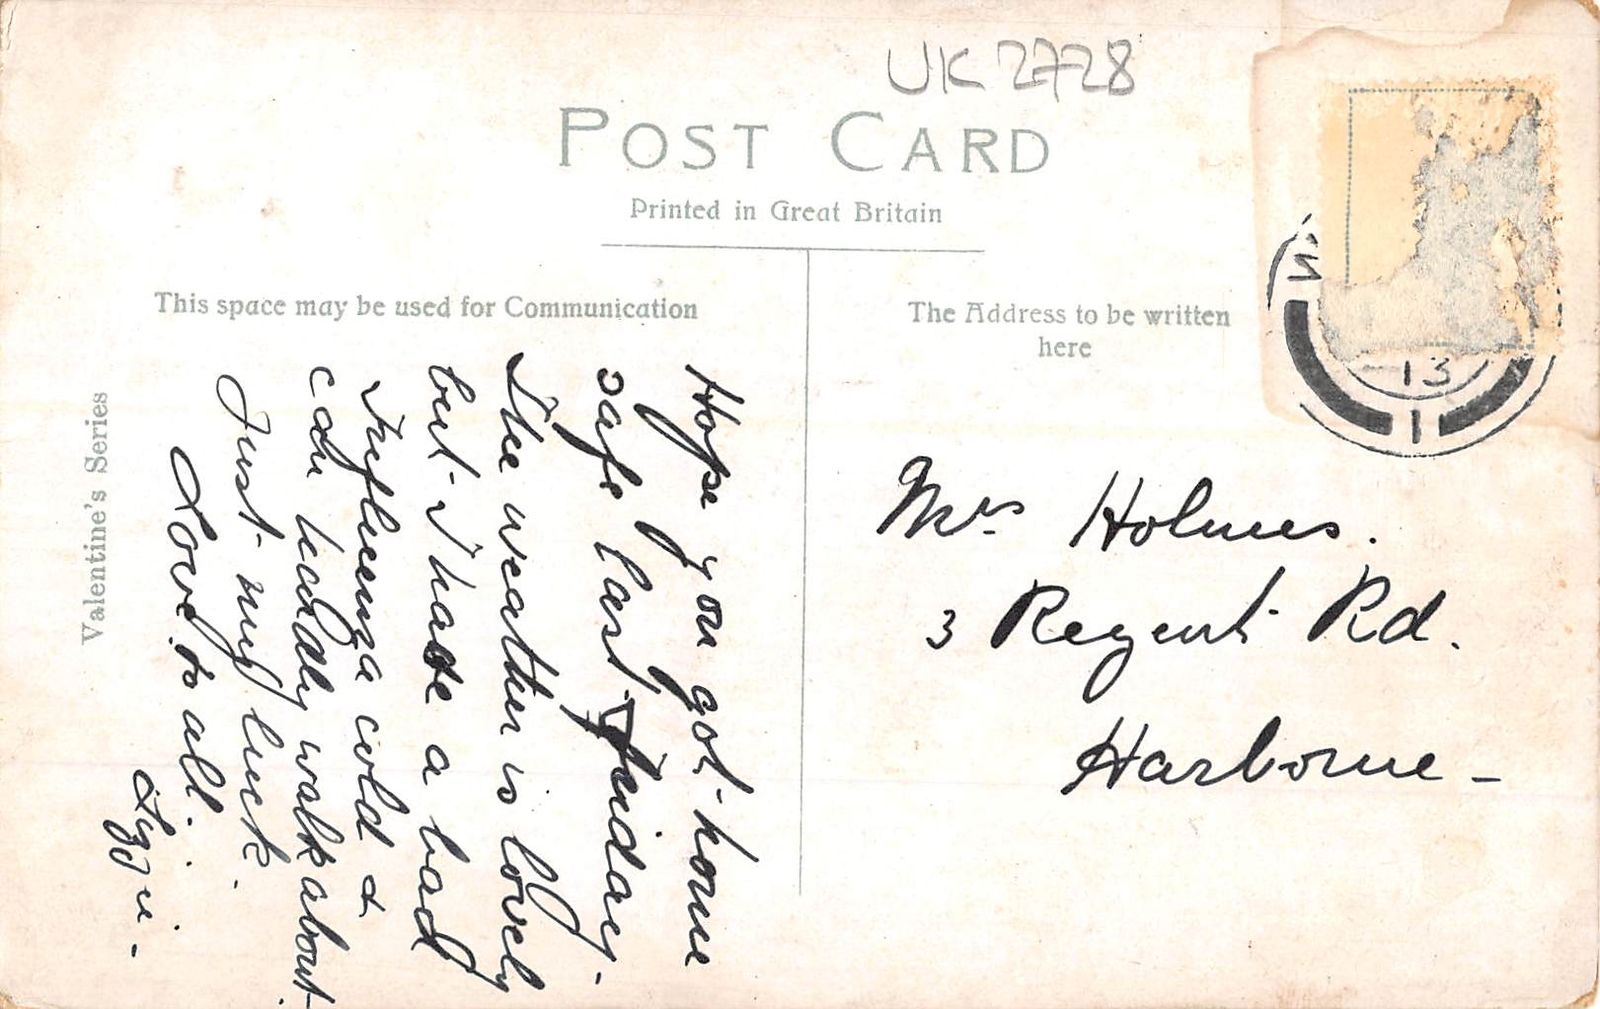 UK 2728
POST CARD
Printed in Great Britain
This space may be used for Communication
The Address to be written
here
Valentine's Series
Hope you got home
safe last Friday.
The weather is lovely
but I have a bad
Influenza cold &
can hardly walk about.
Just my luck.
Love to all.
Mrs Holmes.
3 Regent Rd.
Harborne -
13
1